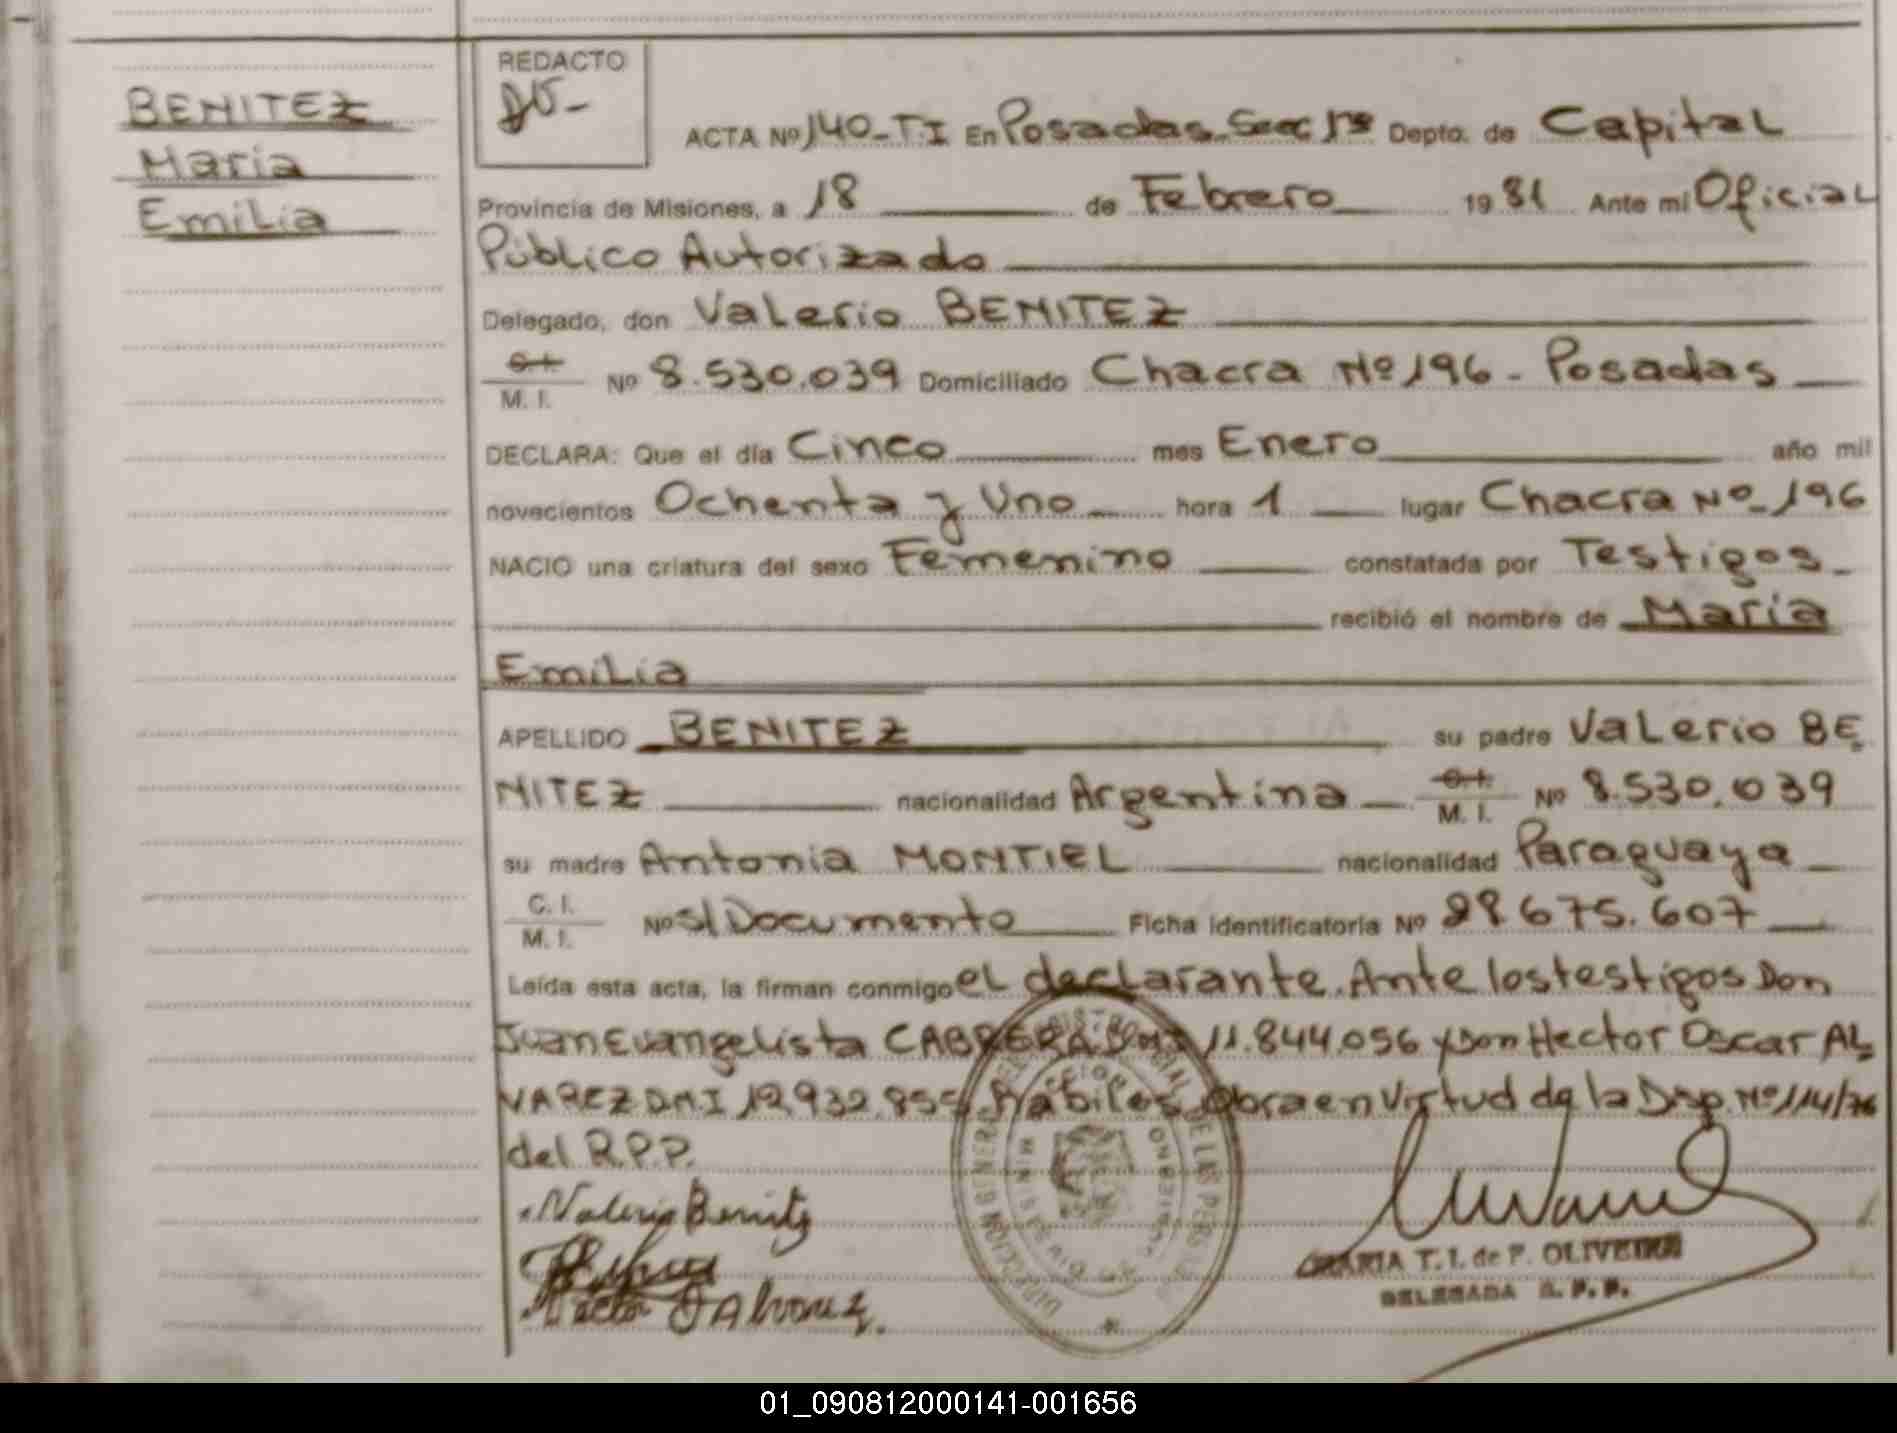 REDACTO
BENITEZ
Maria
Emilia
ACTA Nº 140-T.I En Posadas Secc 1ª Depto. de Capital
Provincia de Misiones, a 18 de Febrero 1981 Ante mi Oficial
Público Autorizado
Delegado, don Valerio BENITEZ
C.I.
M. I. Nº 8.530.039 Domiciliado Chacra Nº 196 - Posadas
DECLARA: Que el día Cinco mes Enero año mil
novecientos Ochenta y Uno hora 1 lugar Chacra Nº 196
NACIO una criatura del sexo Femenino constatada por Testigos
recibió el nombre de Maria
Emilia
APELLIDO BENITEZ su padre Valerio BE
NITEZ nacionalidad Argentina C.I. M. I. Nº 8.530.039
su madre Antonia MONTIEL nacionalidad Paraguaya
C. I.
M. I. Nº S/Documento Ficha identificatoria Nº 28.675.607
Leída esta acta, la firman conmigo el declarante. Ante los testigos Don
Juan Evangelista CABRERA DMI 11.844.056 y Don Hector Oscar AL
VAREZ DMI 12.932.855 Habiles. Obra en Virtud de la Disp. Nº 114/76
del R.P.P.
Valerio Benitez
Hector O Alvarez.
MARIA T. I. de P. OLIVEIRA
DELEGADA R. P. P.
DIRECCION GENERAL DEL REGISTRO PROVINCIAL DE LAS PERSONAS
MISIONES
01_090812000141-001656